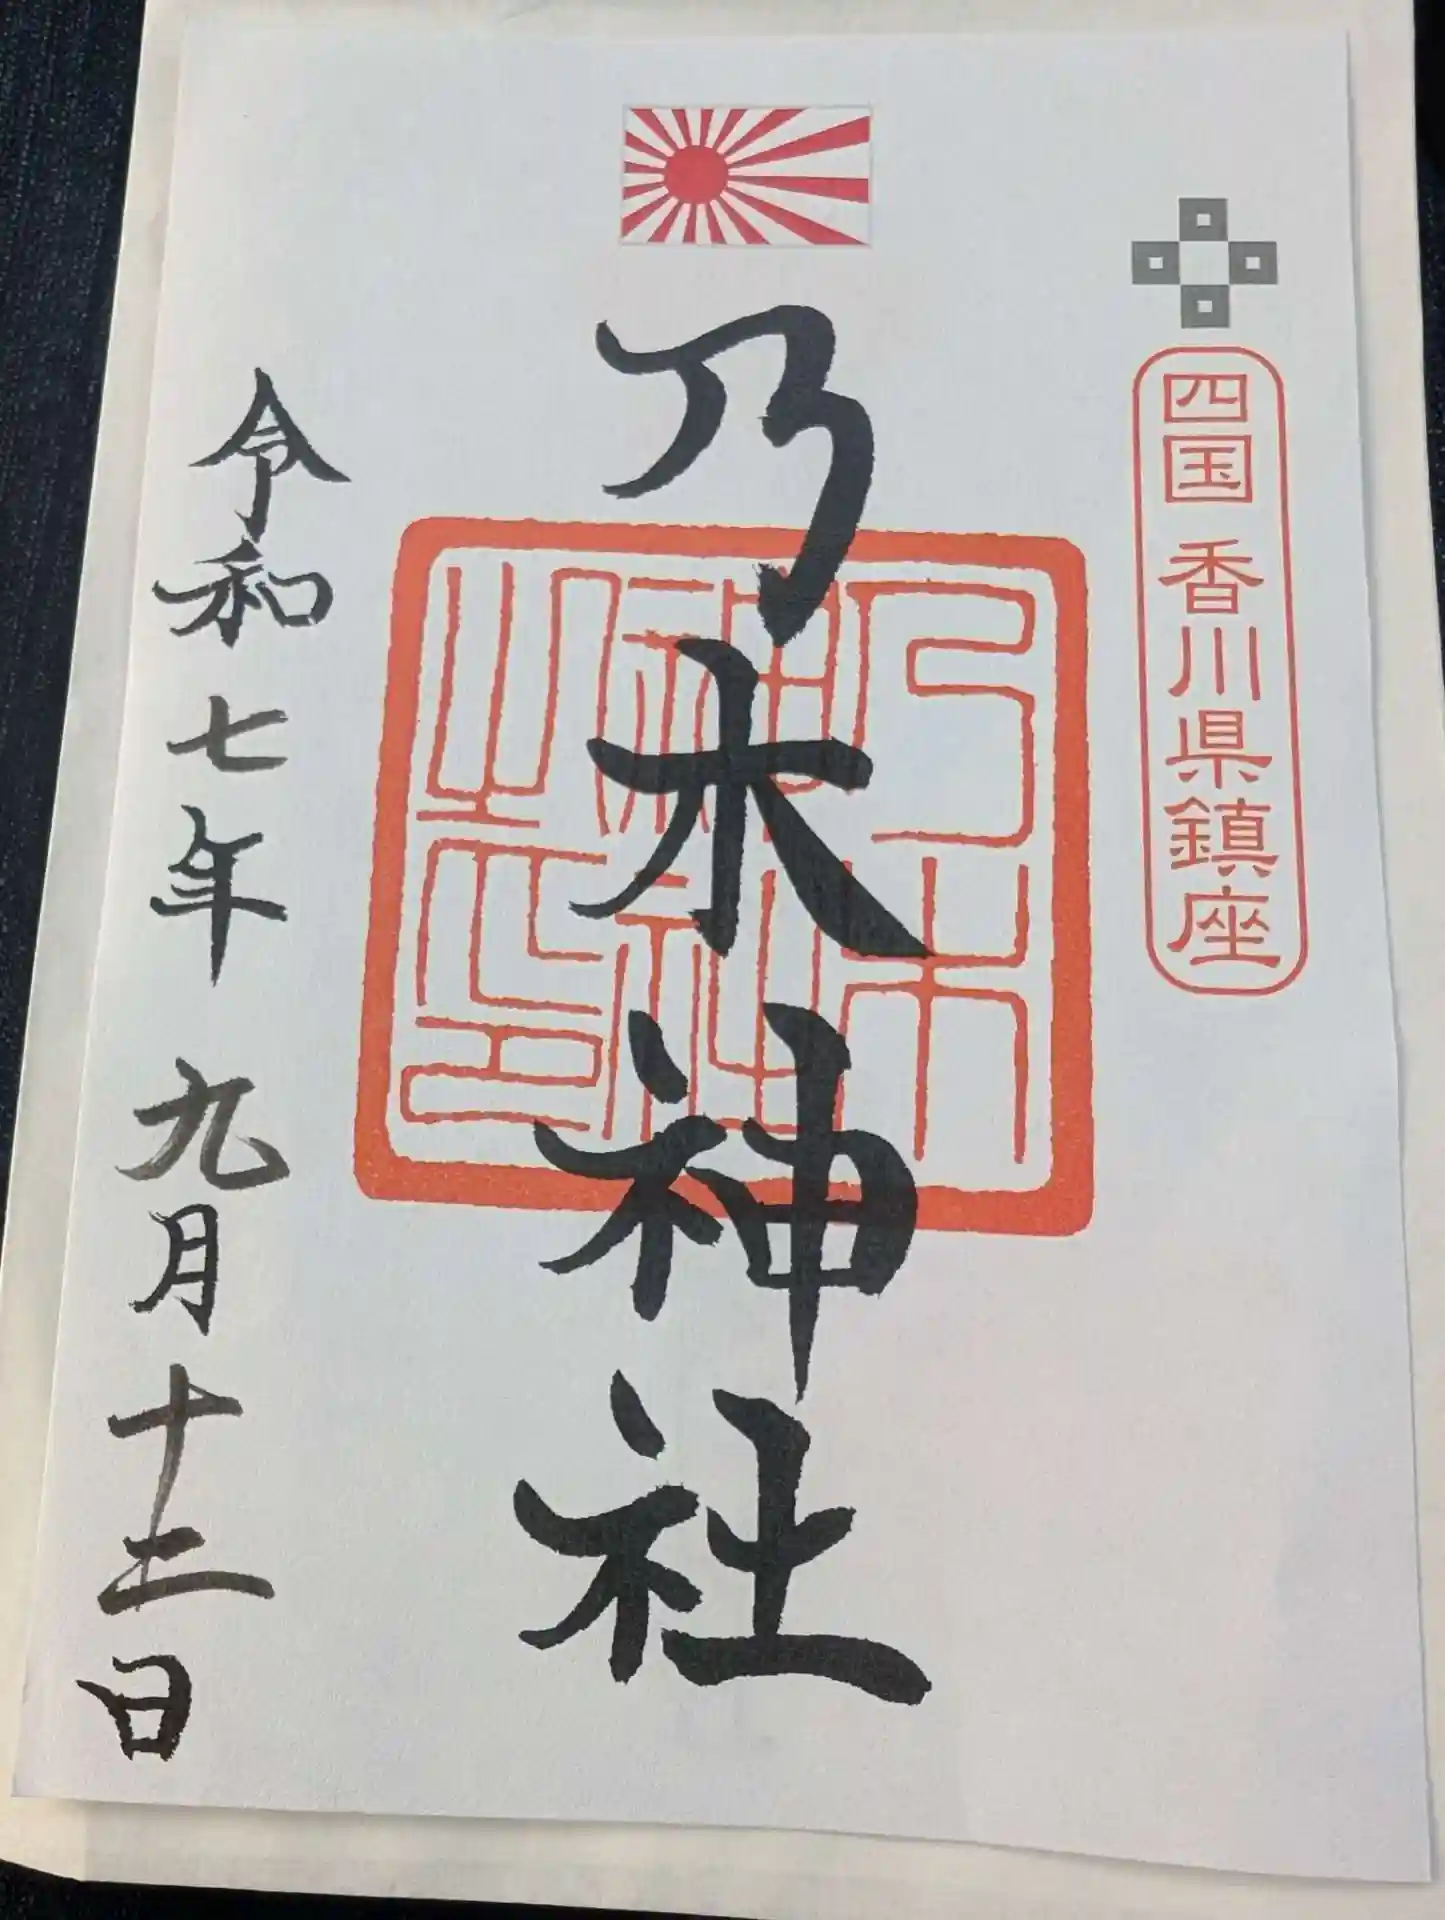 四国 香川県鎮座
乃木神社
乃木神社之印
令和七年 九月十二日